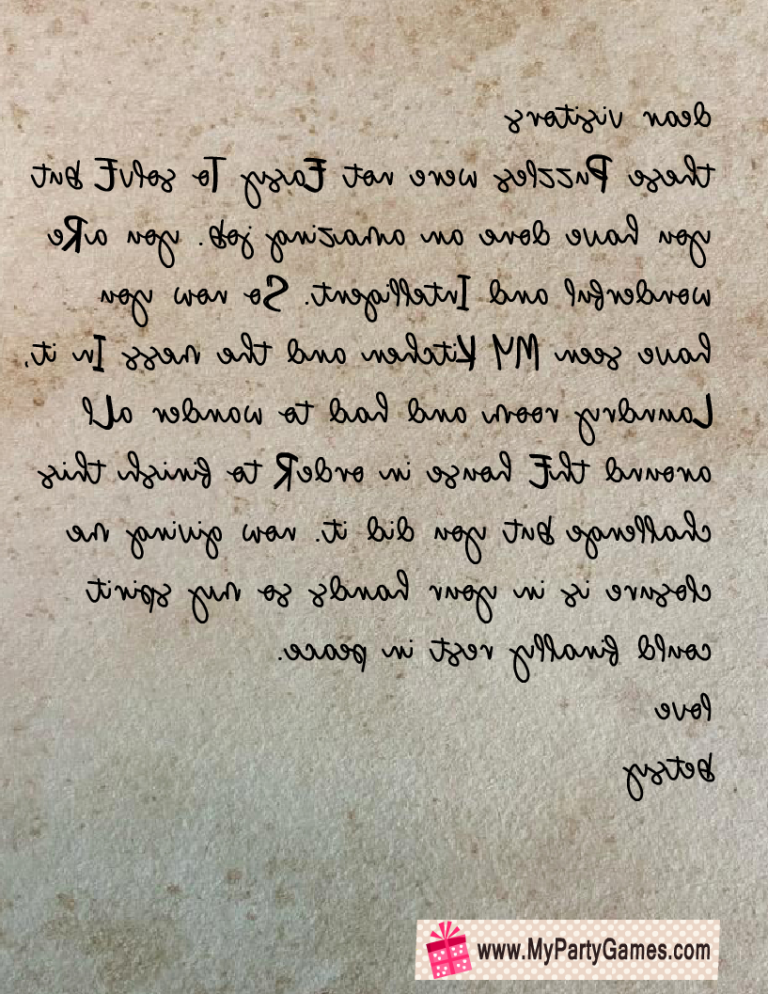 dear visitors
these Puzzles were not Easy To solvE but
you have done an amazing job. you aRe
wonderful and Intelligent. So now you
have seen MY Kitchen and the mess In it,
Laundry room and had to wander aLl
around thE house in ordeR to finish this
challenge but you did it. now giving me
closure is in your hands so my spirit
could finally rest in peace.
love
betsy
www.MyPartyGames.com